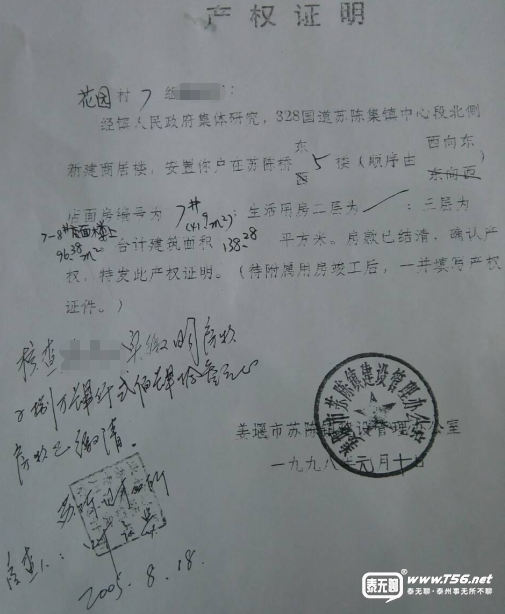 产权证明
花园村 7 组
经镇人民政府集体研究，328国道苏陈集镇中心段北侧
新建商居楼，安置你户在苏陈桥 东 西 5 楼（顺序由 西向东 东向西）
店面房编号为 7# (41.9m²)；生活用房二层为 ；三层为
7-8#店面楼上
96.38m² 合计建筑面积 138.28 平方米。房款已结清，确认产
权，特发此产权证明。（待附属用房竣工后，一并填写产权
证件。）
核查 明房款
房款已缴清。
姜堰市苏陈镇建设管理办公室
姜堰市苏陈镇建设管理办公室
一九九八年元月十日
2005.8.18.
泰无聊 www.T56.net
泰无聊·泰州事无所不聊